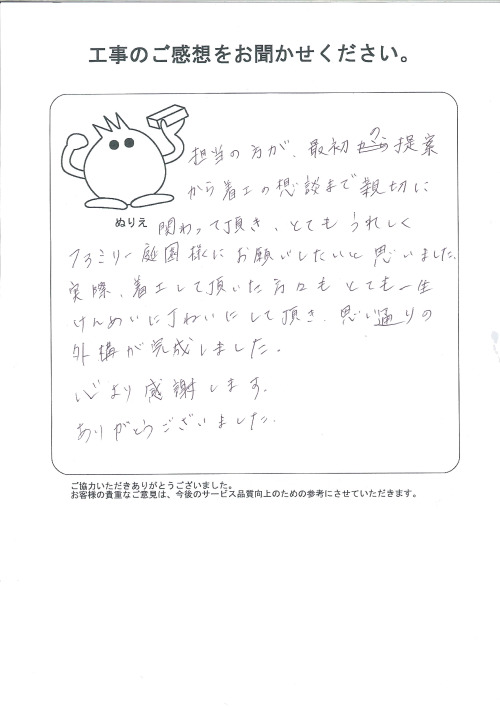 工事のご感想をお聞かせください。
担当の方が、最初の提案
から着工の想談まで親切に
ぬりえ
関わって頂き、とてもうれしく
ファミリー庭園様にお願いしたいと思いました。
実際、着工して頂いた方々もとても一生
けんめいに丁ねいにして頂き、思い通りの
外構が完成しました。
心より感謝します。
ありがとうございました。
ご協力いただきありがとうございました。
お客様の貴重なご意見は、今後のサービス品質向上のための参考にさせていただきます。